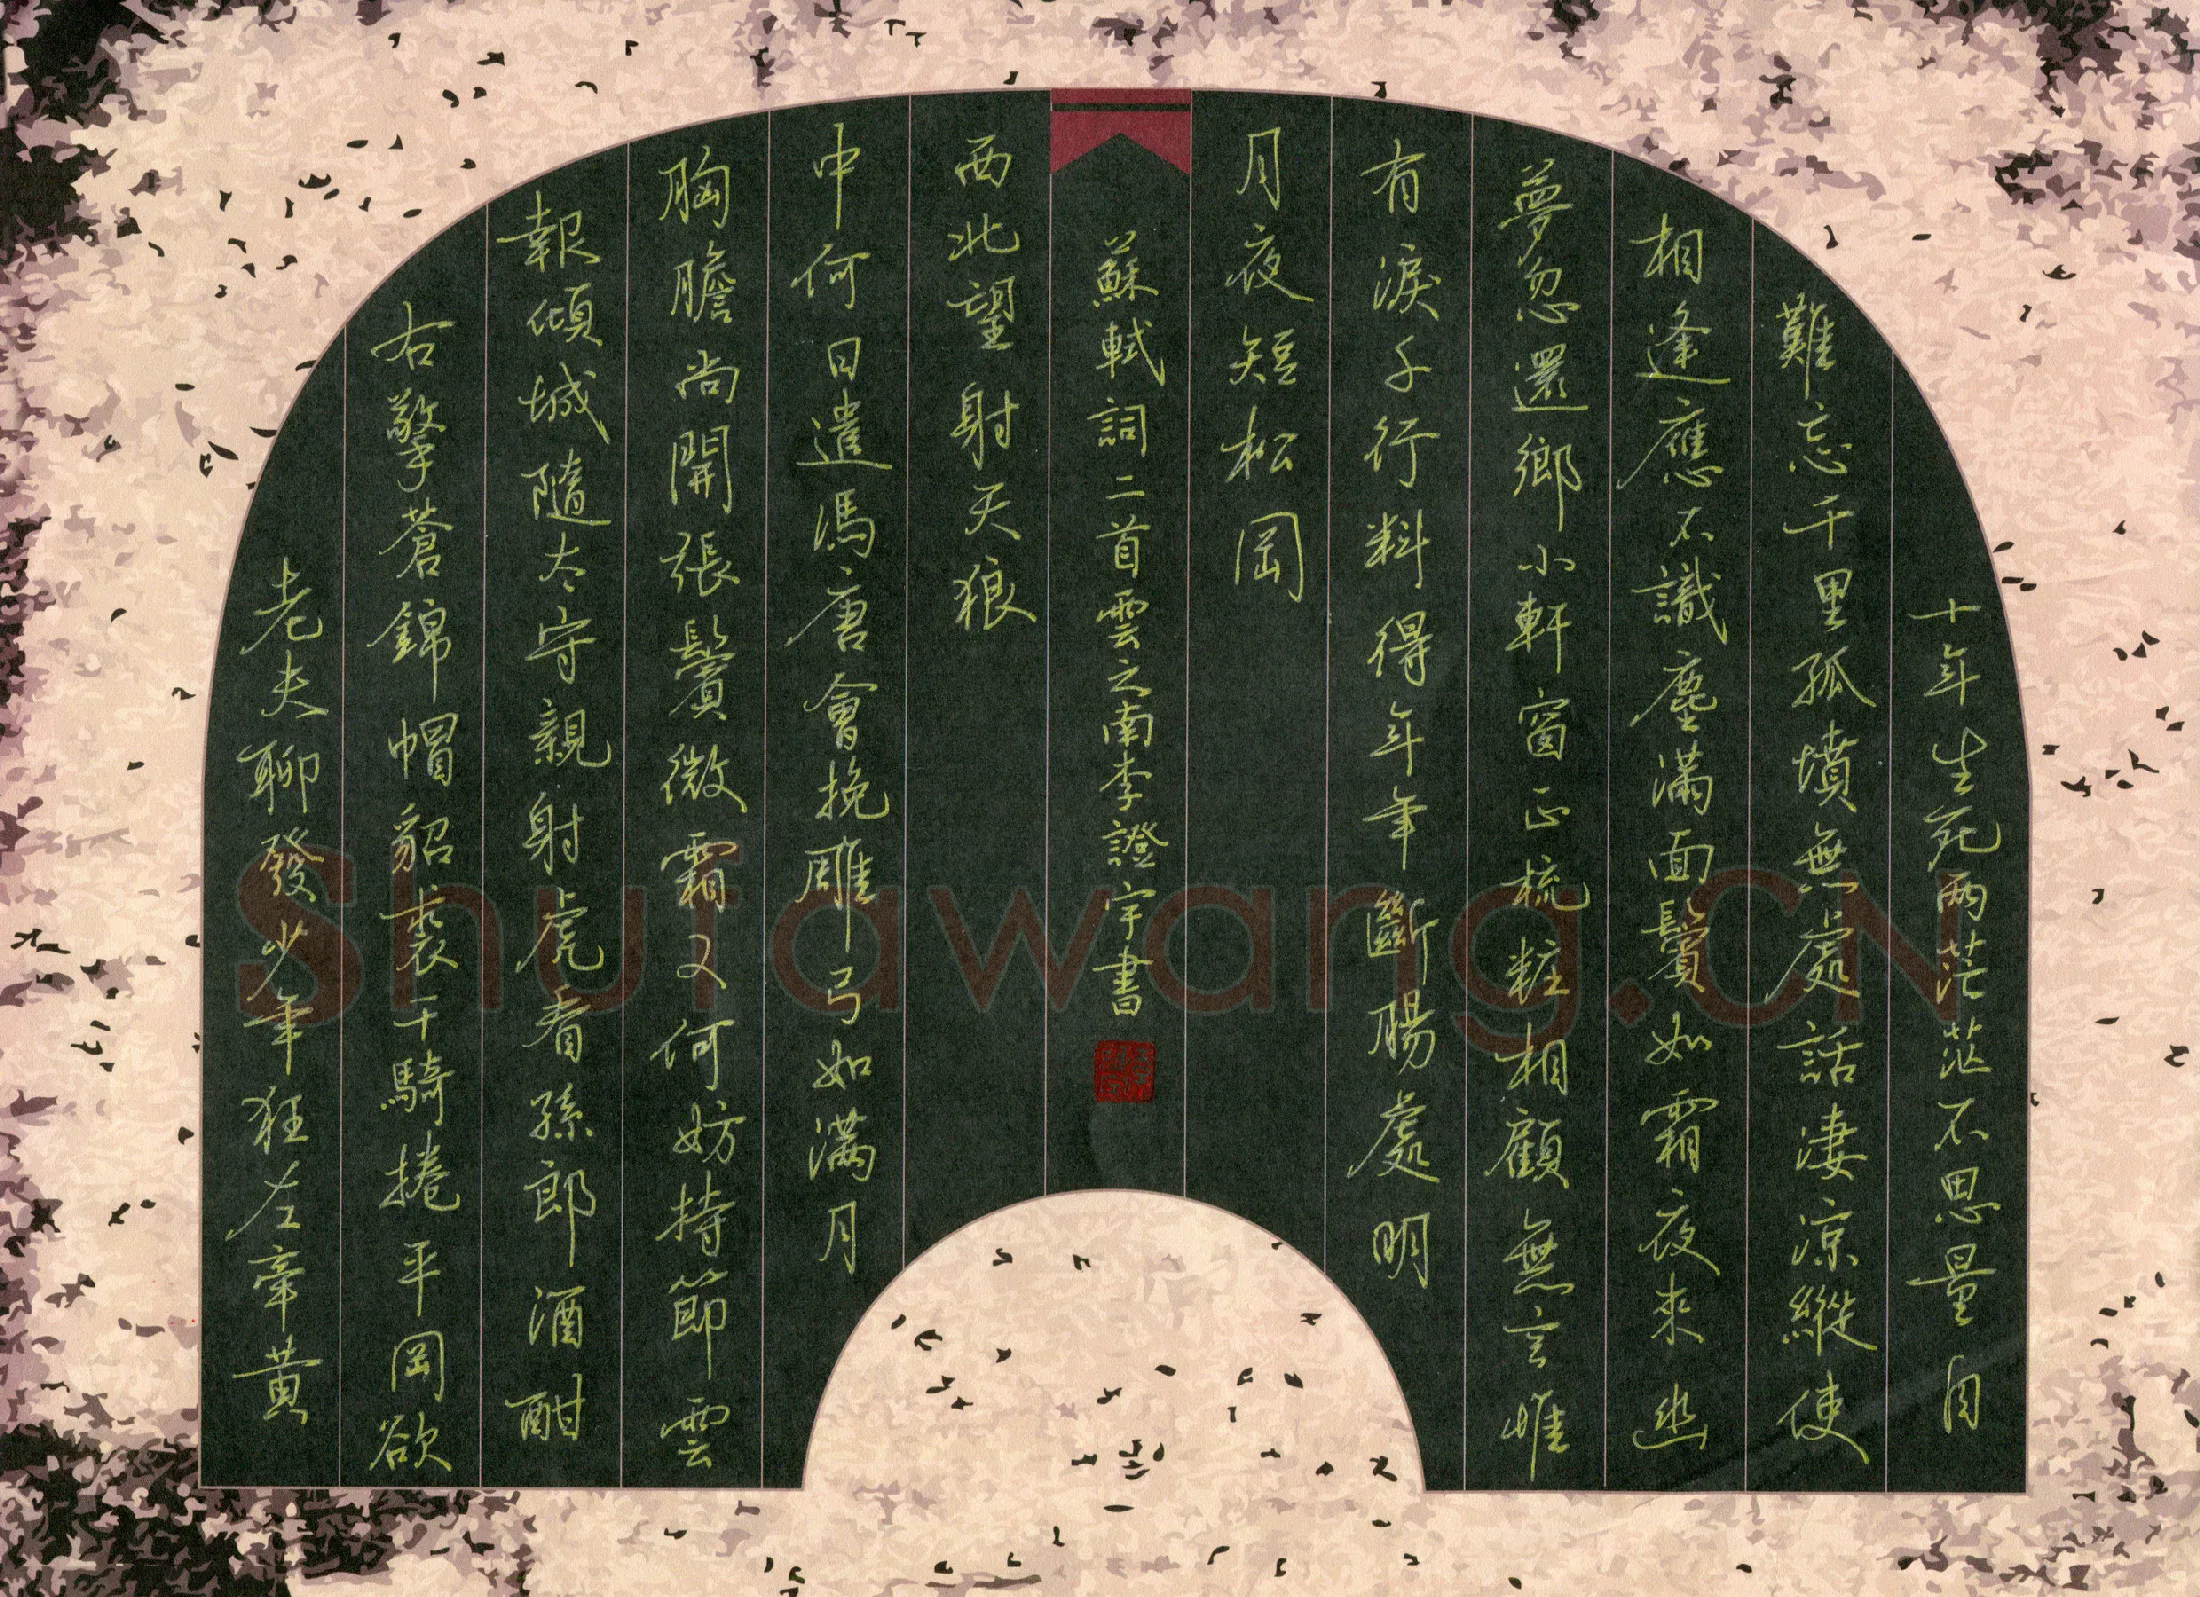 十年生死兩茫茫不思量自
難忘千里孤墳無處話淒涼縱使
相逢應不識塵滿面鬢如霜夜來幽
夢忽還鄉小軒窗正梳粧相顧無言惟
有淚千行料得年年斷腸處明
月夜短松岡
老夫聊發少年狂左牽黃
右擎蒼錦帽貂裘千騎捲平岡欲
報傾城隨太守親射虎看孫郎酒酣
胸膽尚開張鬢微霜又何妨持節雲
中何日遣馮唐會挽雕弓如滿月
西北望射天狼
蘇軾詞二首雲之南李證宇書
Shufawang.CN